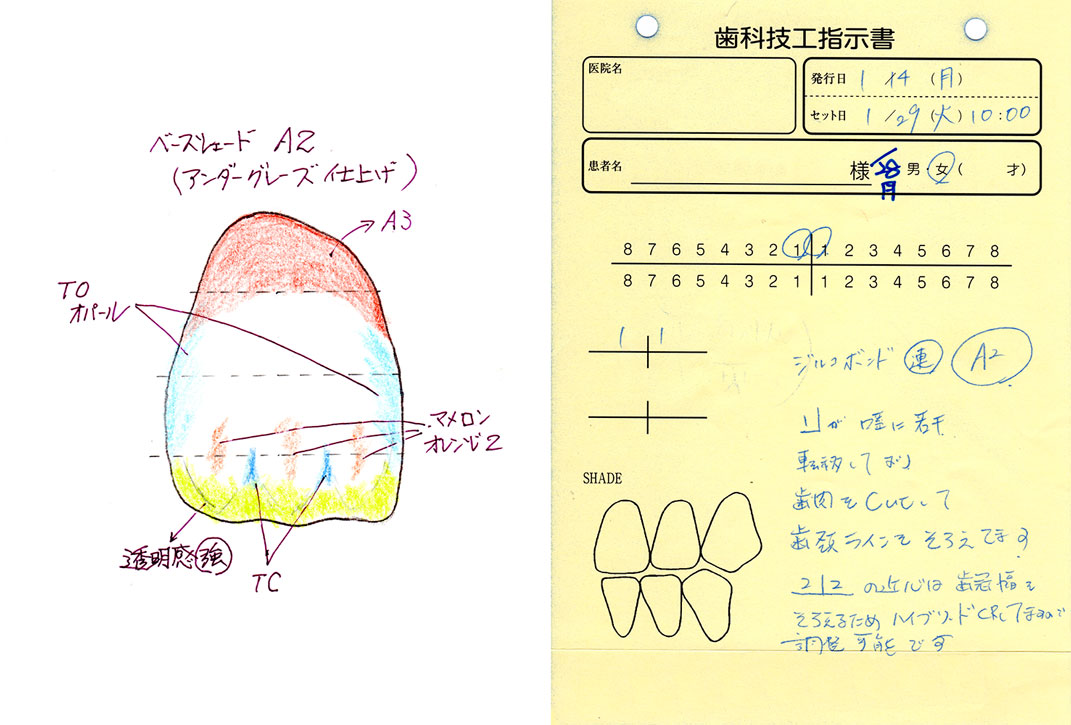 ベースシェード A2
(アンダーグレーズ仕上げ)
A3
TO
オパール
マメロン
オレンジ2
透明感 強
TC
歯科技工指示書
医院名
発行日 1/14 (月)
セット日 1/29 (火) 10:00
患者名 様 男・女( 才)
1/28
月
8 7 6 5 4 3 2 1 1 2 3 4 5 6 7 8
8 7 6 5 4 3 2 1 1 2 3 4 5 6 7 8
1 1
ジルコボンド 連 A2
1」が 唇に若干
転移しており
歯肉をCutして
歯頚ラインをそろえてます
2|2 の近心は歯冠幅を
そろえるため ハイブリッドCRしてますので
調整可能です
SHADE